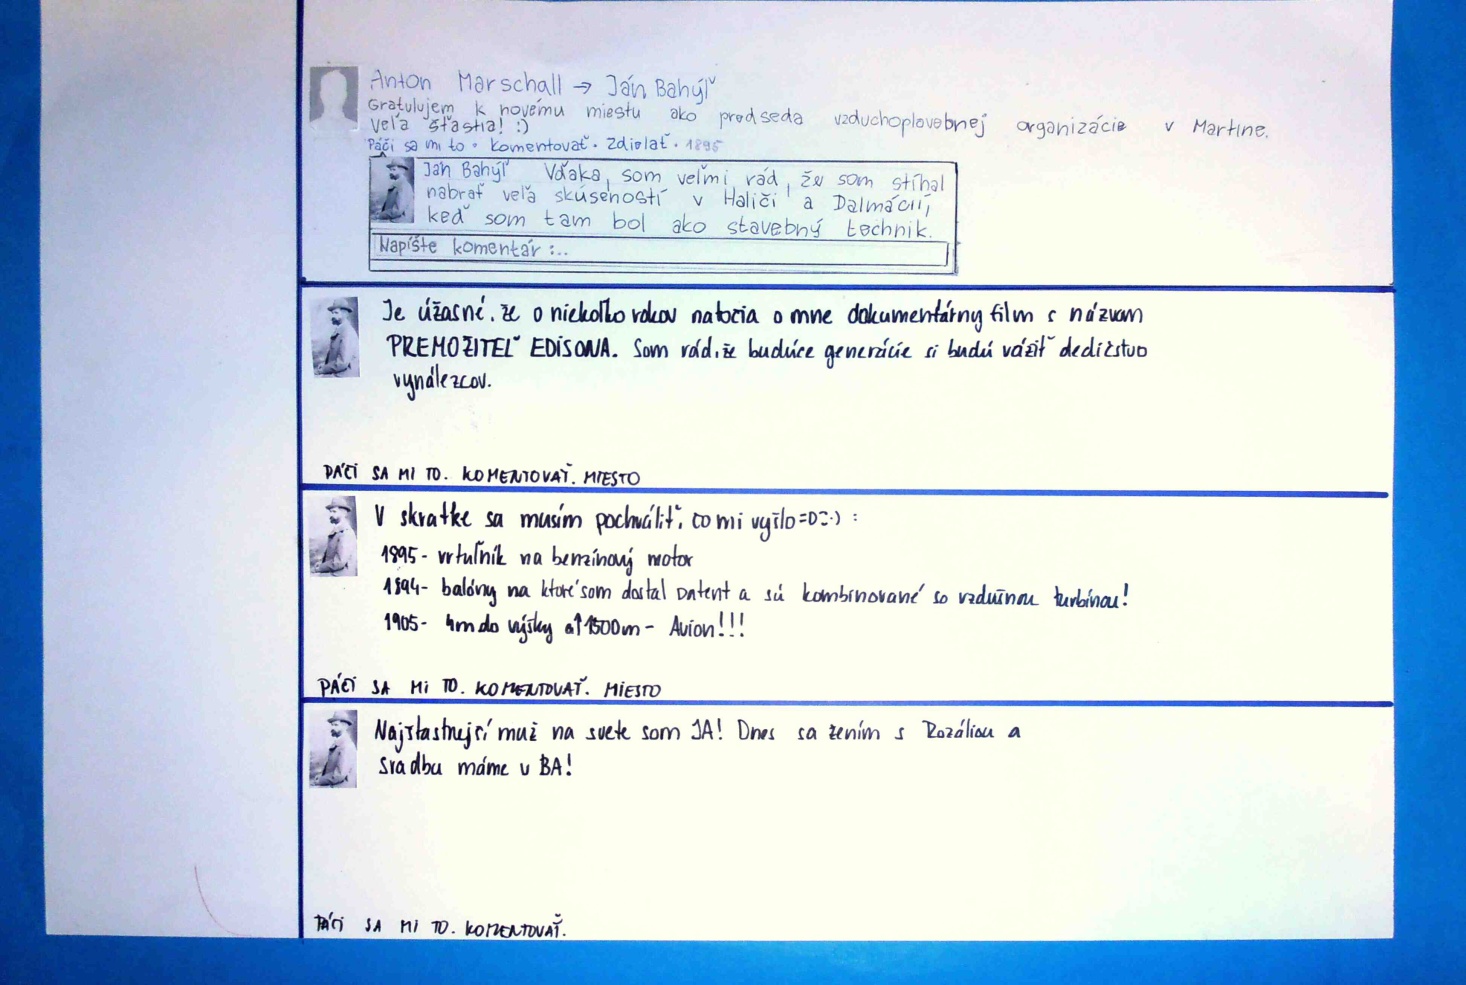 Anton Marschall → Ján Bahýľ
Gratulujem k novému miestu ako predseda vzduchoplavebnej organizácie v Martine.
Veľa šťastia! :)
Páči sa mi to · Komentovať · Zdielať · 1895
Ján Bahýľ Vďaka, som veľmi rád, že som stíhal
nabrať veľa skúseností v Haliči a Dalmácii,
keď som tam bol ako stavebný technik.
Napíšte komentár :..
Je úžasné, že o niekoľko rokov natočia o mne dokumentárny film s názvom
PREMOŽITEĽ EDISONA. Som rád, že budúce generácie si budú vážiť dedičstvo
vynálezcov.
PÁČI SA MI TO. KOMENTOVAŤ. MIESTO
V skratke sa musím pochváliť, čo mi vyšlo =D :-) :
1895 - vrtuľník na benzínový motor
1894 - balóny na ktoré som dostal patent a sú kombinované so vzdušnou turbínou!
1905 - 4m do výšky a ↑1500m - Avion!!!
PÁČI SA MI TO. KOMENTOVAŤ. MIESTO
Najšťastnejší muž na svete som JA! Dnes sa žením s Rozáliou a
svadbu máme v BA!
PÁČI SA MI TO. KOMENTOVAŤ.